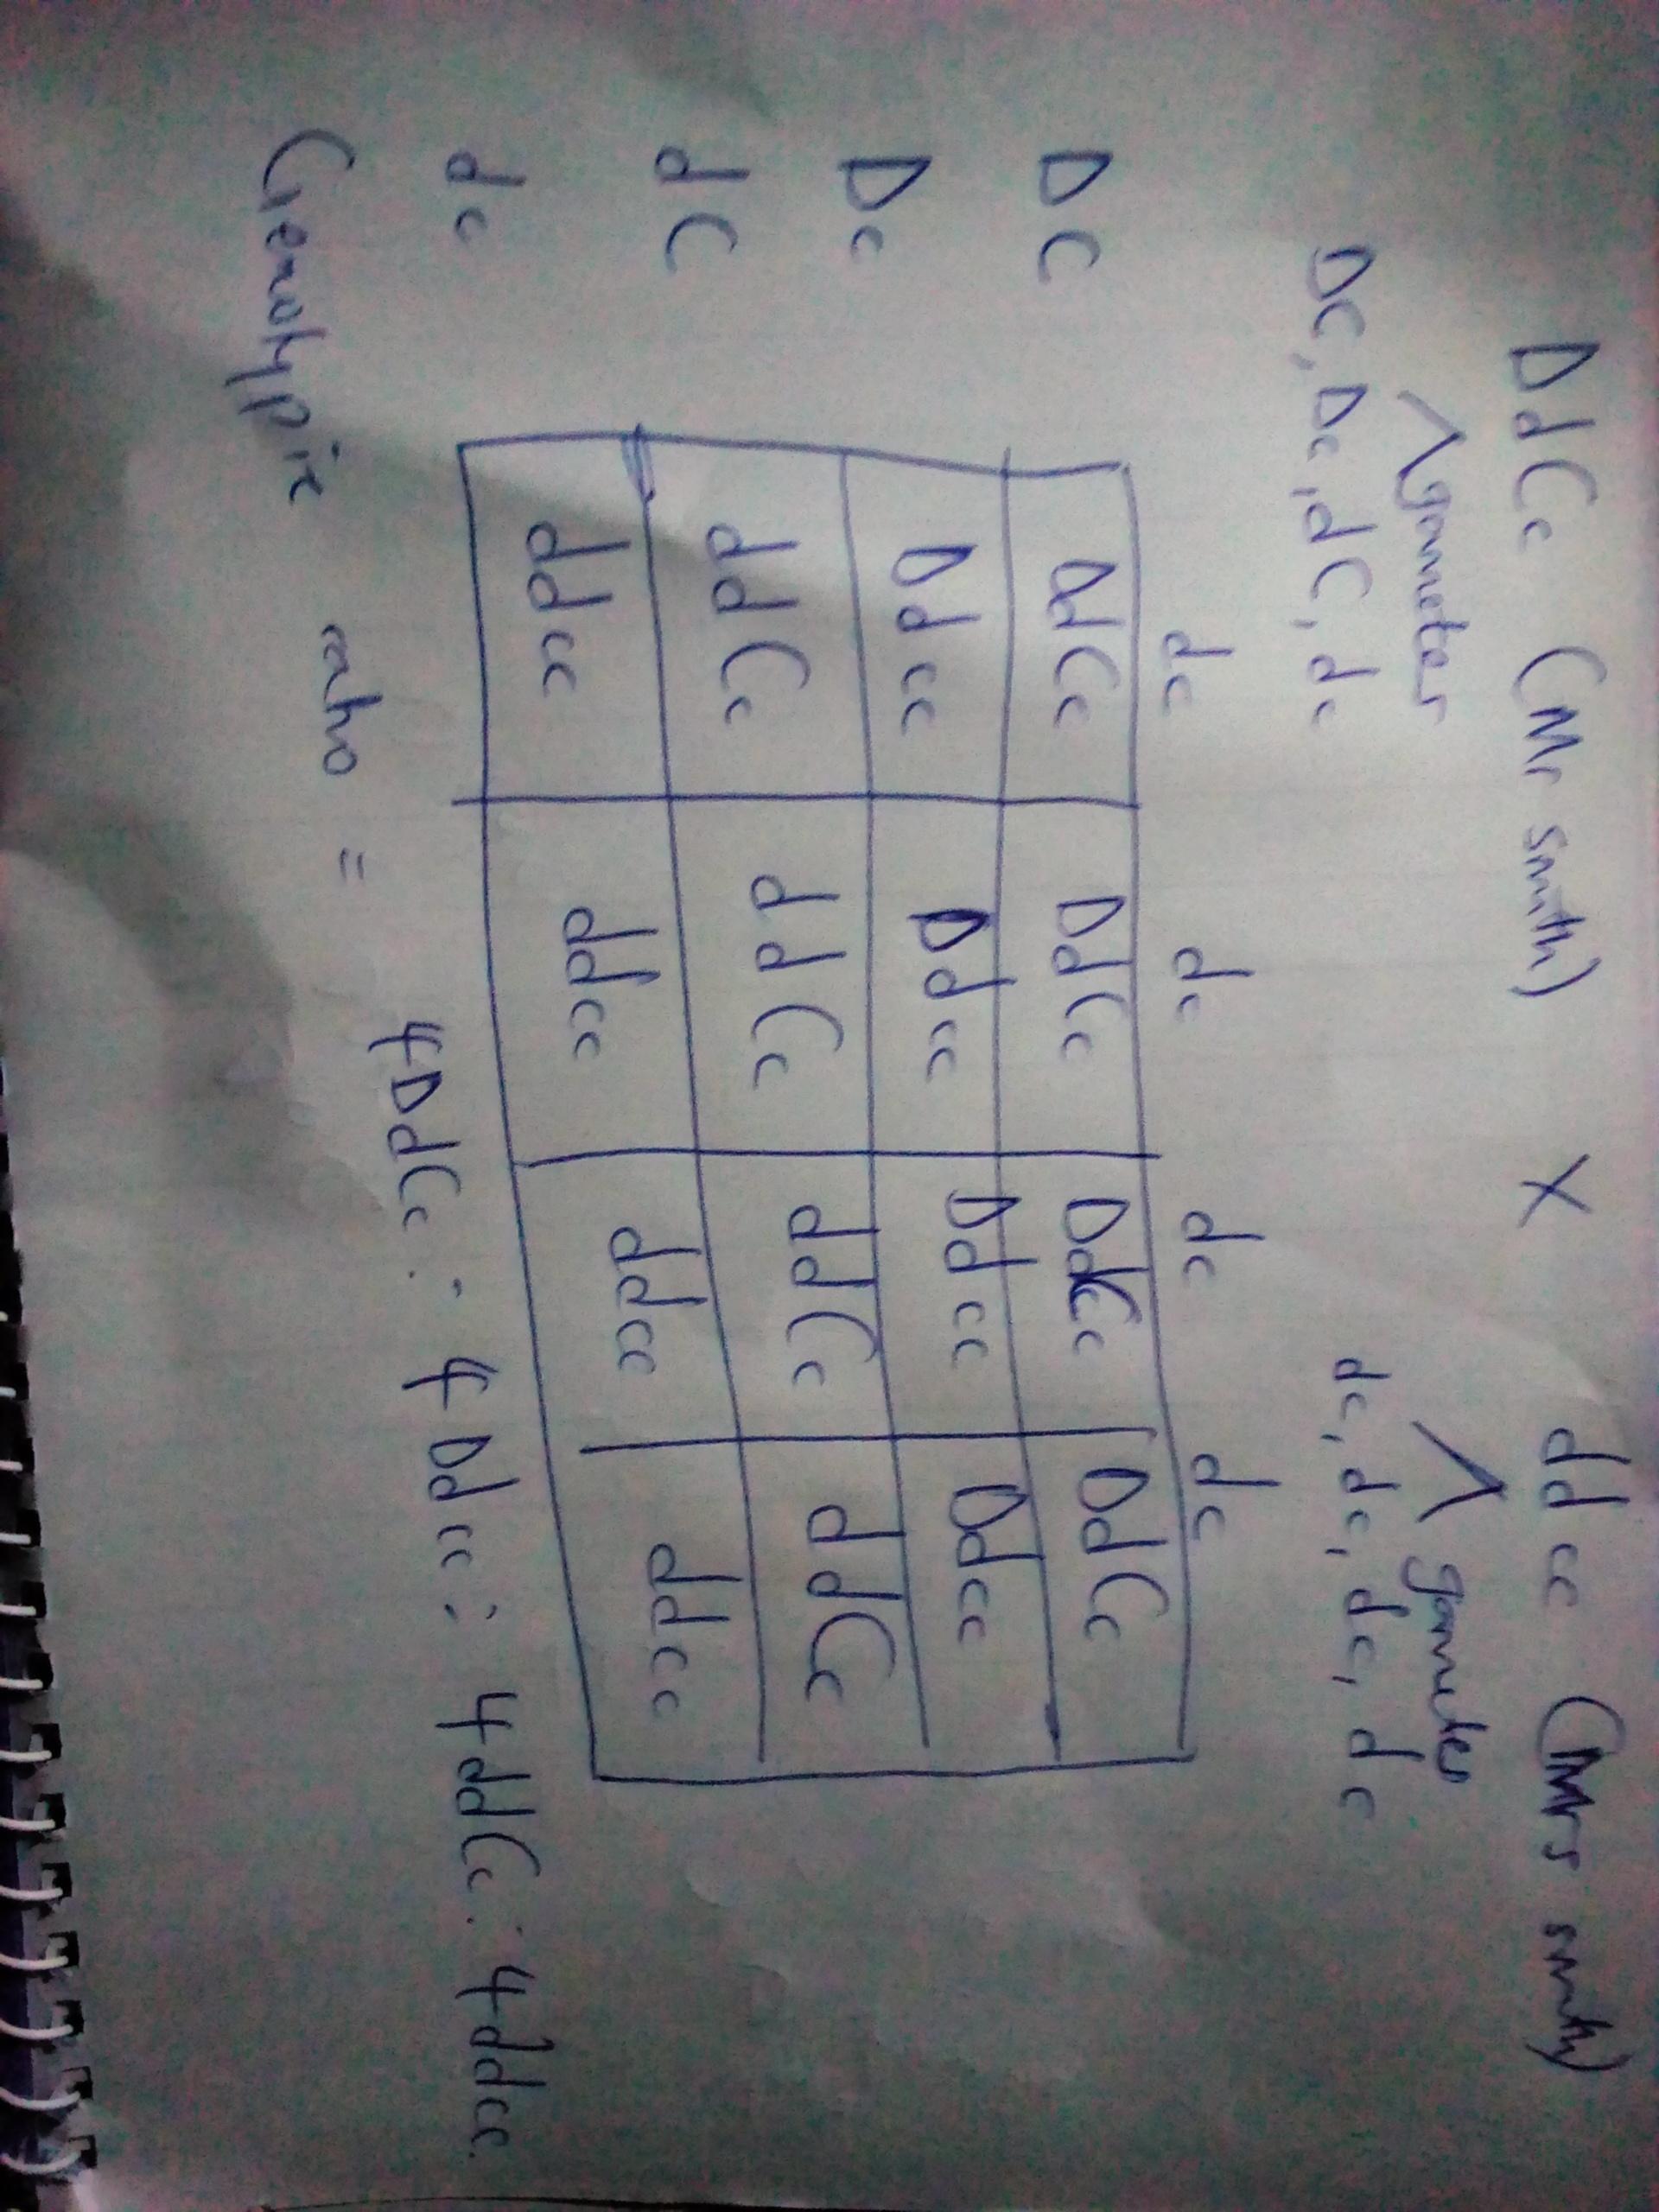 DdCc (Mr smith) X ddcc (Mrs smith)
gametes gametes
DC, Dc, dC, dc dc, dc, dc, dc
dc dc dc dc
DC DdCc DdCc DdCc DdCc
Dc Ddcc Ddcc Ddcc Ddcc
dC ddCc ddCc ddCc ddCc
dc ddcc ddcc ddcc ddcc
Genotypic ratio = 4DdCc : 4Ddcc : 4ddCc : 4ddcc